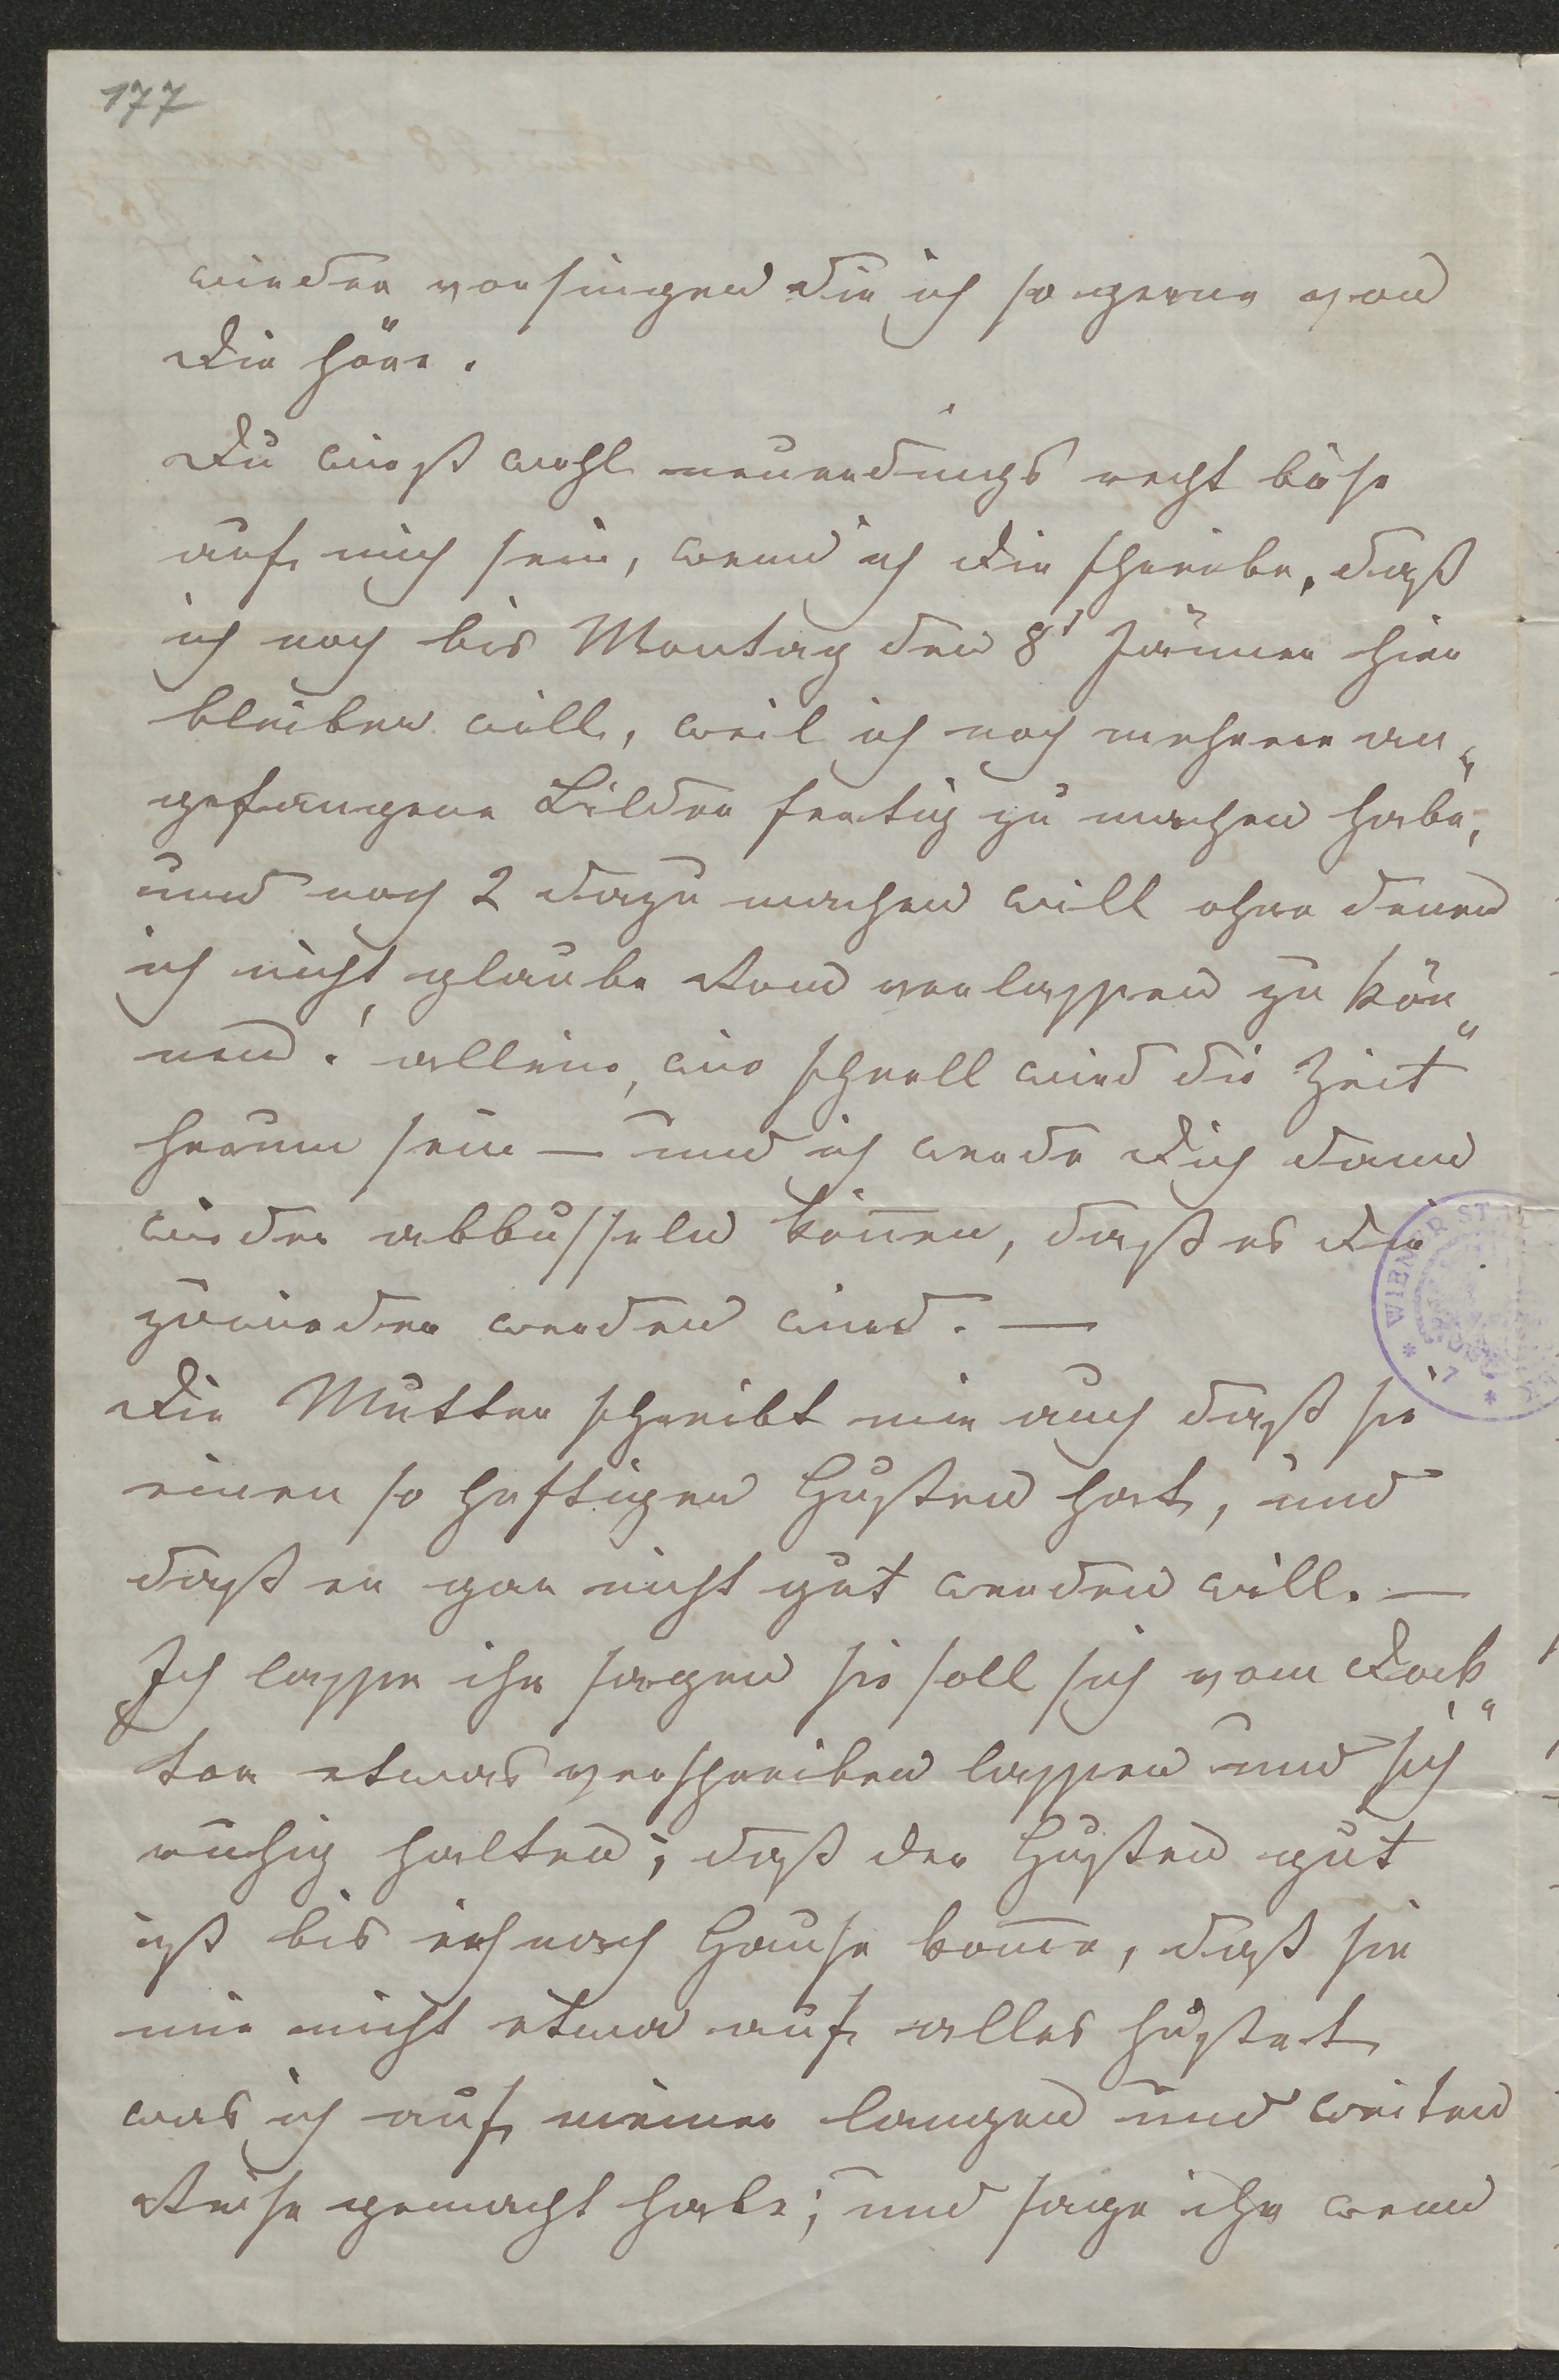 177
wieder vorsingen die ich so gerne von
Dir höre.
Du wirst wohl neuerdings recht böse
auf mich sein, wenn ich Dir schreibe, daß
ich noch bis Montag den 8t Jänner hier
bleiben will, weil ich noch mehrere an„
gefangene Bilder fertig zu machen habe,
und noch 2 dazu machen will ohne denen
ich nicht glaube Rom verlassen zu kön„
nen. allein, wie schnell wird die Zeit
herum sein — und ich werde Dich dann
wieder abbusseln können, daß es Dir
zuwieder werden wird. —
Die Mutter schreibt mir auch daß sie
einen so heftigen Husten hat, und
daß er gar nicht gut werden will. —
Ich lasse ihr sagen sie soll sich vom Dock„
tor etwas verschreiben lassen und sich
ruhig halten; daß der Husten gut
ist bis ich nach Hause kom̅e, daß sie
mir nicht etwa auf alles hustet
was ich auf meiner langen und weiten
Reise gemacht habe; und sage ihr wenn
WIENER ST
* 7 *